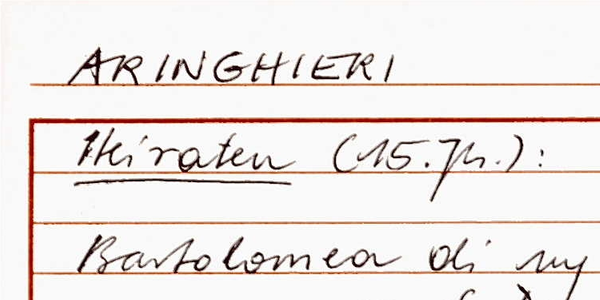 ARINGHIERI
Heiraten (15. Jh.):
Bartolomea di